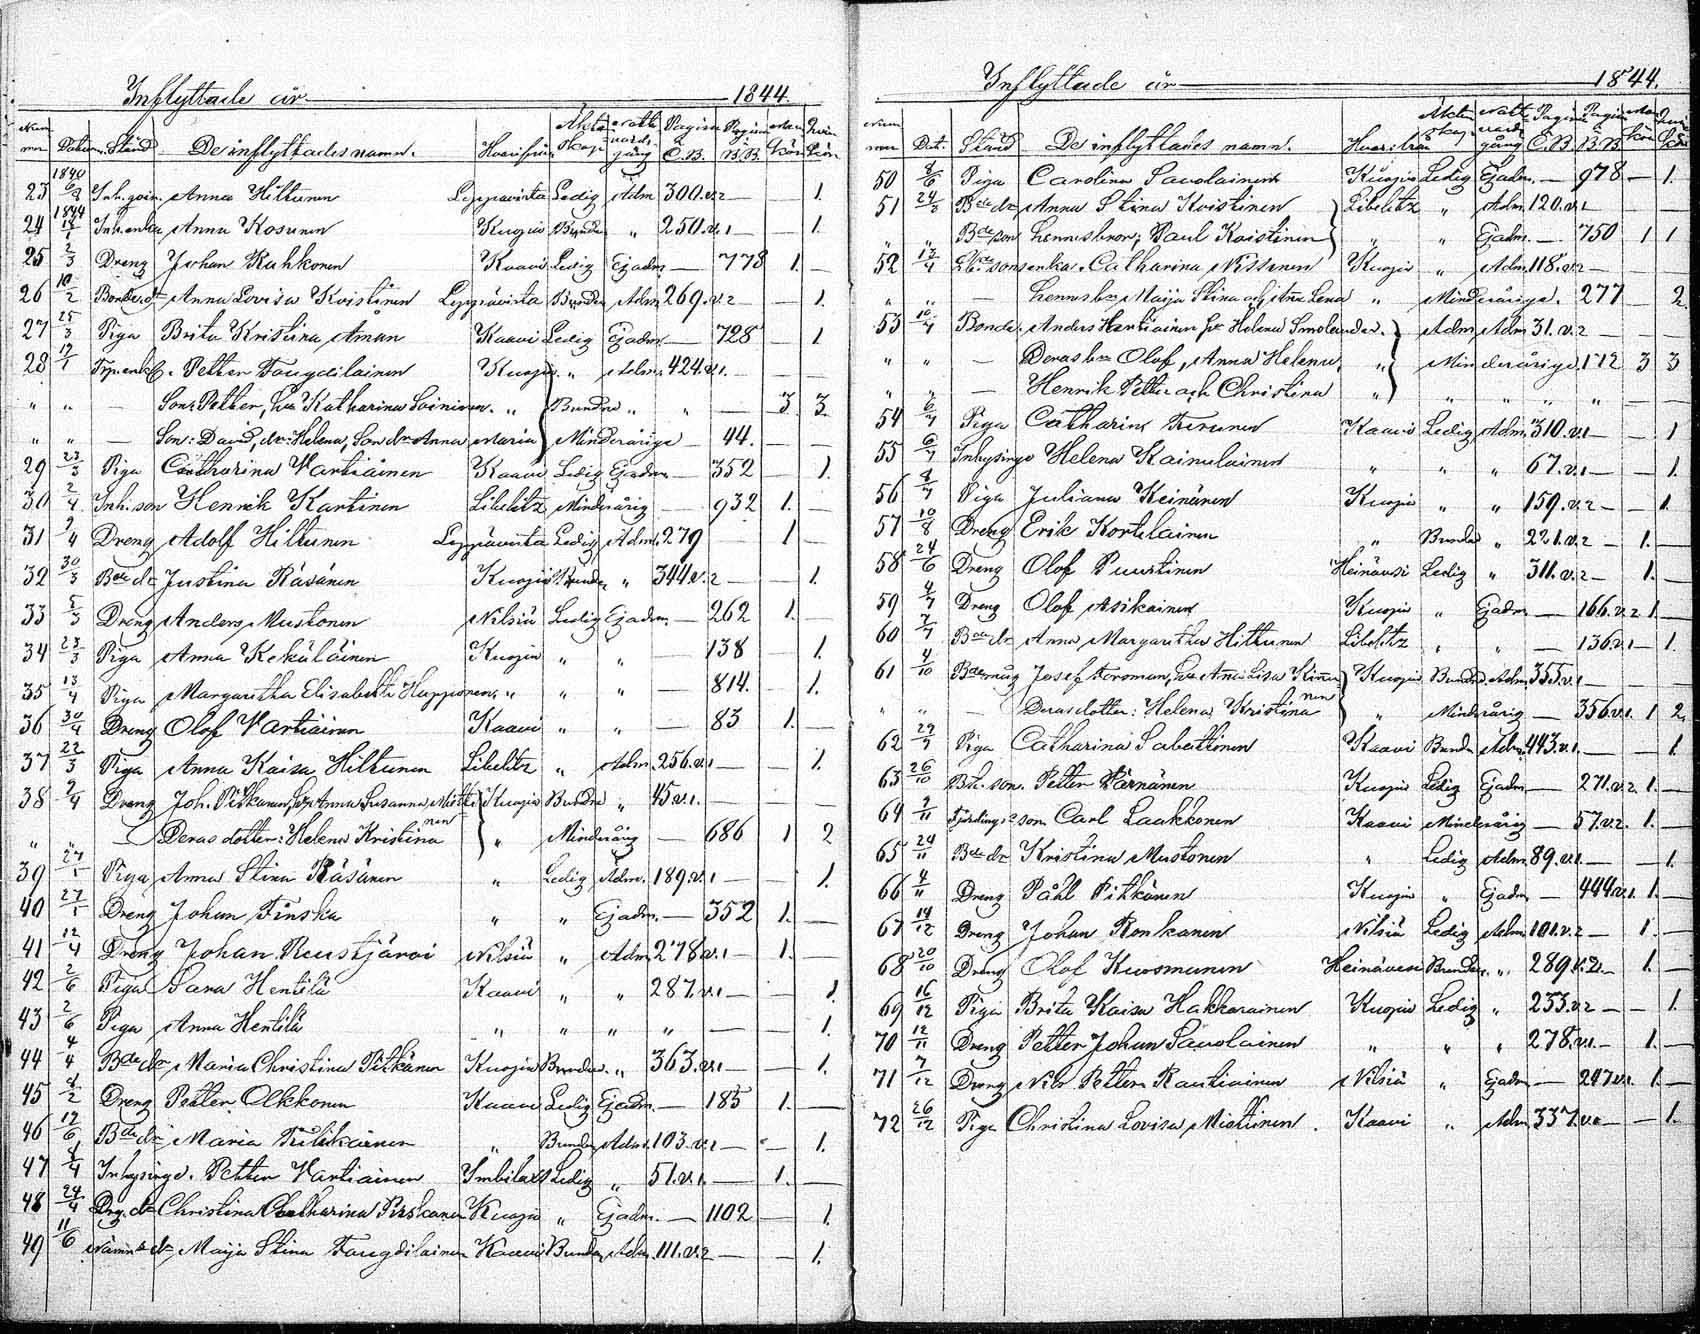 Inflyttade år 1844.
Num mer Datum. Stånd De inflyttades namn. Hvarifrån Äkta Skap Nattvards gång Pagina i C.B. Pagina i B.B. Man kön Qvin kön
1840
23 6/8 Inh. Anna Hiltunen Leppävirta Ledig Adm 300.v.2 — — 1.
1844
24 12/1 Inh. enka Anna Kosunen Kuopio Bunden " 250.v.1 — — 1.
25 2/3 Dreng Johan Kuhkonen Kaavi Ledig Ej adm — 778 1. —
26 10/2 Bondedr Anna Lovisa Koistinen Leppävirta Bunden Adm 269.v.2 — — 1.
27 25/3 Piga Brita Kristina Åman Kaavi Ledig Ej adm — 728 — 1
28 12/1 Petter Taugdilainen Kuopio " Adm. 424.v.1. —
" " — Son: Petter, hu Katharina Soininen. " Bundne " " — 3 3.
" " — Son: David, dr: Helena, Son dr Anna Maria Minderåriga — 44. —
29 23/3 Piga Catharina Vartiainen Kaavi Ledig Ej adm — 352 — 1.
30 2/4 Inh. son Henrik Kartinen Libelitz Minderårig — 932 1. —
31 9/4 Dreng Adolf Hiltunen Leppävirta Ledig Adm. 279 1 —
32 30/3 Bde dr Justina Räsänen Kuopio Bunden " 344.v.2 — — 1.
33 5/3 Dreng Anders Mustonen Nilsiä Ledig Ej adm — 262 1. —
34 23/3 Piga Anna Kekäläinen Kuopio " " — 138 — 1.
35 13/4 Piga Margaretha Elisabeth Hupponen, " " " — 814. — 1.
36 30/4 Dreng Olof Vartiainen Kaavi " " — 83 1. —
37 22/3 Piga Anna Kaisa Hiltunen Libelitz " Adm. 256.v.1 — — 1.
38 9/4 Dreng Joh. Pitkänen, hu Anna Susanna Miet Kuopio Bundne " 45.v.1. —
nen
" " — Deras dotter: Helena Kristina " Minderårig — 686 1 2
39 27/1 Piga Anna Stina Räsänen " Ledig Adm. 189.v.1 — — 1.
40 27/1 Dreng Johan Finska " " Ej adm. — 352 1. —
41 12/4 Dreng Johan Ruustjärvi Nilsiä " Adm 278.v.1 — 1. —
42 2/6 Piga Sara Hentilä Kaavi " " 287.v.1 — — 1.
43 2/6 Piga Anna Hentilä " " " " — — 1.
44 4/4 Bde dr Maria Christina Pitkänen Kuopio Bunden " 363.v.1 — — 1.
45 8/2 Dreng Petter Olkkonen Kaavi Ledig Ej adm. — 185 1. —
46 12/6 Bde dr Maria " Bunden Adm. 103.v.1 — 1.
47 8/4 Inhysinge. Petter Vartiainen Imbilaks Ledig " 51.v.1. — 1. —
48 24/4 Drg. dr Christina Catharina Pirskanen Kuopio " Ej adm. — 1102 — 1.
49 11/6 Nämn. dr Maija Stina Taugdilainen Kaavi Bunden Adm. 111.v.2 — — 1.
Inflyttade år 1844.
Num mer Dat. Stånd De inflyttades namn. Hvarifrån Äkten skap Natt vards gång Pagina i C.B. Pagina i B.B. Man kön Qvin kön
50 8/6 Piga Carolina Savolainen Kuopio Ledig Ej adm. — 978 — 1.
51 24/3 Bde dr Anna Stina Koistinen Libelitz " Adm. 120.v.1 — —
" " Bde son hennes bror; Paul Koistinen " " Ej adm. — 750 1 1
52 13/4 sons enka. Catharina Nissinen Kuopio " Adm. 118.v.2 —
" " — hennes br Maija Stina och Anna Lena " Minderåriga. 277 — 2.
53 10/4 Bonde. Anders Hartiainen hu Helena Smolander. Adm Adm 31.v.2 —
" " — Deras br Olof, Anna Helena, " Minderåriga. 172 3 3
" " — Henrik Petter och Christina " " " " " —
54 6/7 Piga Catharina Turunen Kaavi Ledig Adm. 310.v.1 — — 1
55 6/7 Inhysinge Helena Kainulainen " " " 67.v.1 — — 1.
56 8/7 Piga Juliana Keinänen Kuopio " " 159.v.2 — — 1.
57 10/8 Dreng Erik Kortelainen " Bunden " 221.v.2 — 1. —
58 24/6 Dreng Olof Puustinen Heinävesi Ledig " 311.v.2 — 1. —
59 4/7 Dreng Olof Asikainen Kuopio " Ej adm. — 166.v.2 1. —
60 7/7 Bde dr Anna Margaretha Hiltunen Libelitz " " — 136.v.1 — 1.
61 4/10 Bdemåg Josef Forsman, hu Anna Lisa Kinu Kuopio Bundne. Adm. 355.v.1 —
nen
" " — Deras dotter: Helena Kristina " Minderårig — 356.v.1. 1 2.
62 29/7 Piga Catharina Sabettinen Kaavi Bunden Adm. 443.v.1. — — 1.
63 26/10 Bde. son. Petter Pärnänen Kuopio Ledig Ej adm — 271.v.2 1. —
64 9/11 Fjerdings: son Carl Laakkonen Kaavi Minderårig — 57.v.2. 1. —
65 24/11 Bde dr Kristina Mustonen " Ledig Adm. 89.v.1. — — 1.
66 4/11 Dreng Påhl Pitkänen Kuopio " Ej adm. — 444.v.1. 1. —
67 14/12 Dreng Johan Ronkanen Nilsiä Ledig Adm. 101.v.2 — 1. —
68 20/10 Dreng Olof Kuosmanen Heinävesi Bunden. " 289.v.2. — 1. —
69 16/12 Piga Brita Kaisa Hakkarainen Kuopio Ledig " 233.v.2 — — 1.
70 12/11 Dreng Petter Johan Savolainen " " " 278.v.1. — 1. —
71 7/12 Dreng Nils Petter Rautiainen Nilsiä " Ej adm. — 247.v.1. 1. —
72 26/12 Piga Christina Lovisa Miettinen. Kaavi " Adm. 337.v. — — 1.